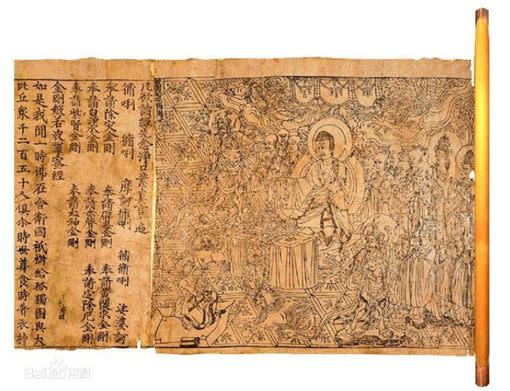 凡欲讀經先念淨口業真言一遍
脩唎 脩唎 摩訶脩唎 脩脩唎 娑婆訶
奉請除災金剛 奉請辟毒金剛 奉請黃隨求金剛
奉請白淨水金剛 奉請赤聲金剛 奉請定除厄金剛
奉請紫賢金剛 奉請大神金剛
金剛般若波羅蜜經
如是我聞一時佛在舍衛國祇樹給孤獨園與大
比丘衆千二百五十人俱尒時世尊食時著衣持
Baidu百科